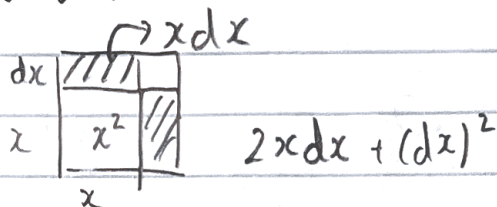 xdx
dx
x x² 2xdx + (dx)²
x